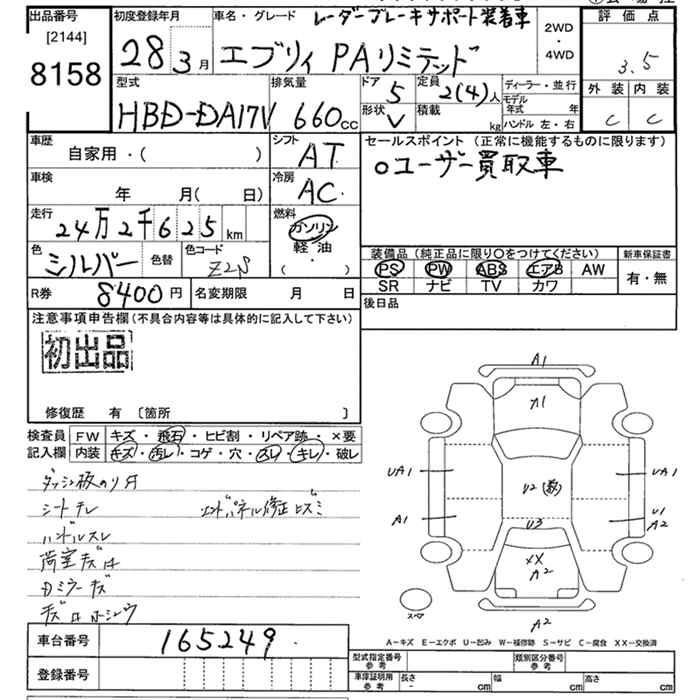 出品番号
[2144]
8158
初度登録年月
28年3月
車名・グレード
レーダーブレーキサポート装着車
エブリィ PAリミテッド
2WD
・
4WD
評価点
3.5
外装 内装
C C
型式
HBD-DA17V
排気量
660cc
ドア
5
定員
2(4)人
形状
V
積載
kg
ディーラー・並行
モデル年式 年
ハンドル 左・右
車歴
自家用・( )
シフト
AT
車検
年 月(日)
冷房
AC
走行
24万2千625km
燃料
ガソリン
軽油
( )
色
シルバー
色替
色コード
Z2S
R券
8400円
名変期限 月 日
セールスポイント(正常に機能するものに限ります)
○ユーザー買取車
装備品(純正品に限り○をつけてください)
PS PW ABS エアB AW
SR ナビ TV カワ
新車保証書
有・無
後日品
注意事項申告欄(不具合内容等は具体的に記入して下さい)
初出品
修復歴 有 〔箇所 〕
検査員記入欄
FW キズ・飛石・ヒビ割・リペア跡・×要
内装 キズ・汚レ・コゲ・穴・スレ・キレ・破レ
ダッシュ板のり片
シートテレ
エンドパネル修正ヒズミ
ハンドルスレ
荷室キズ凹
Dミラーキズ
A1
A1
UA1
UA1
U2
A1
U3
U1
A2
XX
A2
スペア
A2
A－キズ E－エクボ U－凹み W－補修跡 S－サビ C－腐食 XX－交換済
車台番号
165249
登録番号
型式指定番号
参考
類別区分番号
参考
車庫証明用
参考
長さ
cm
幅
cm
高さ
cm